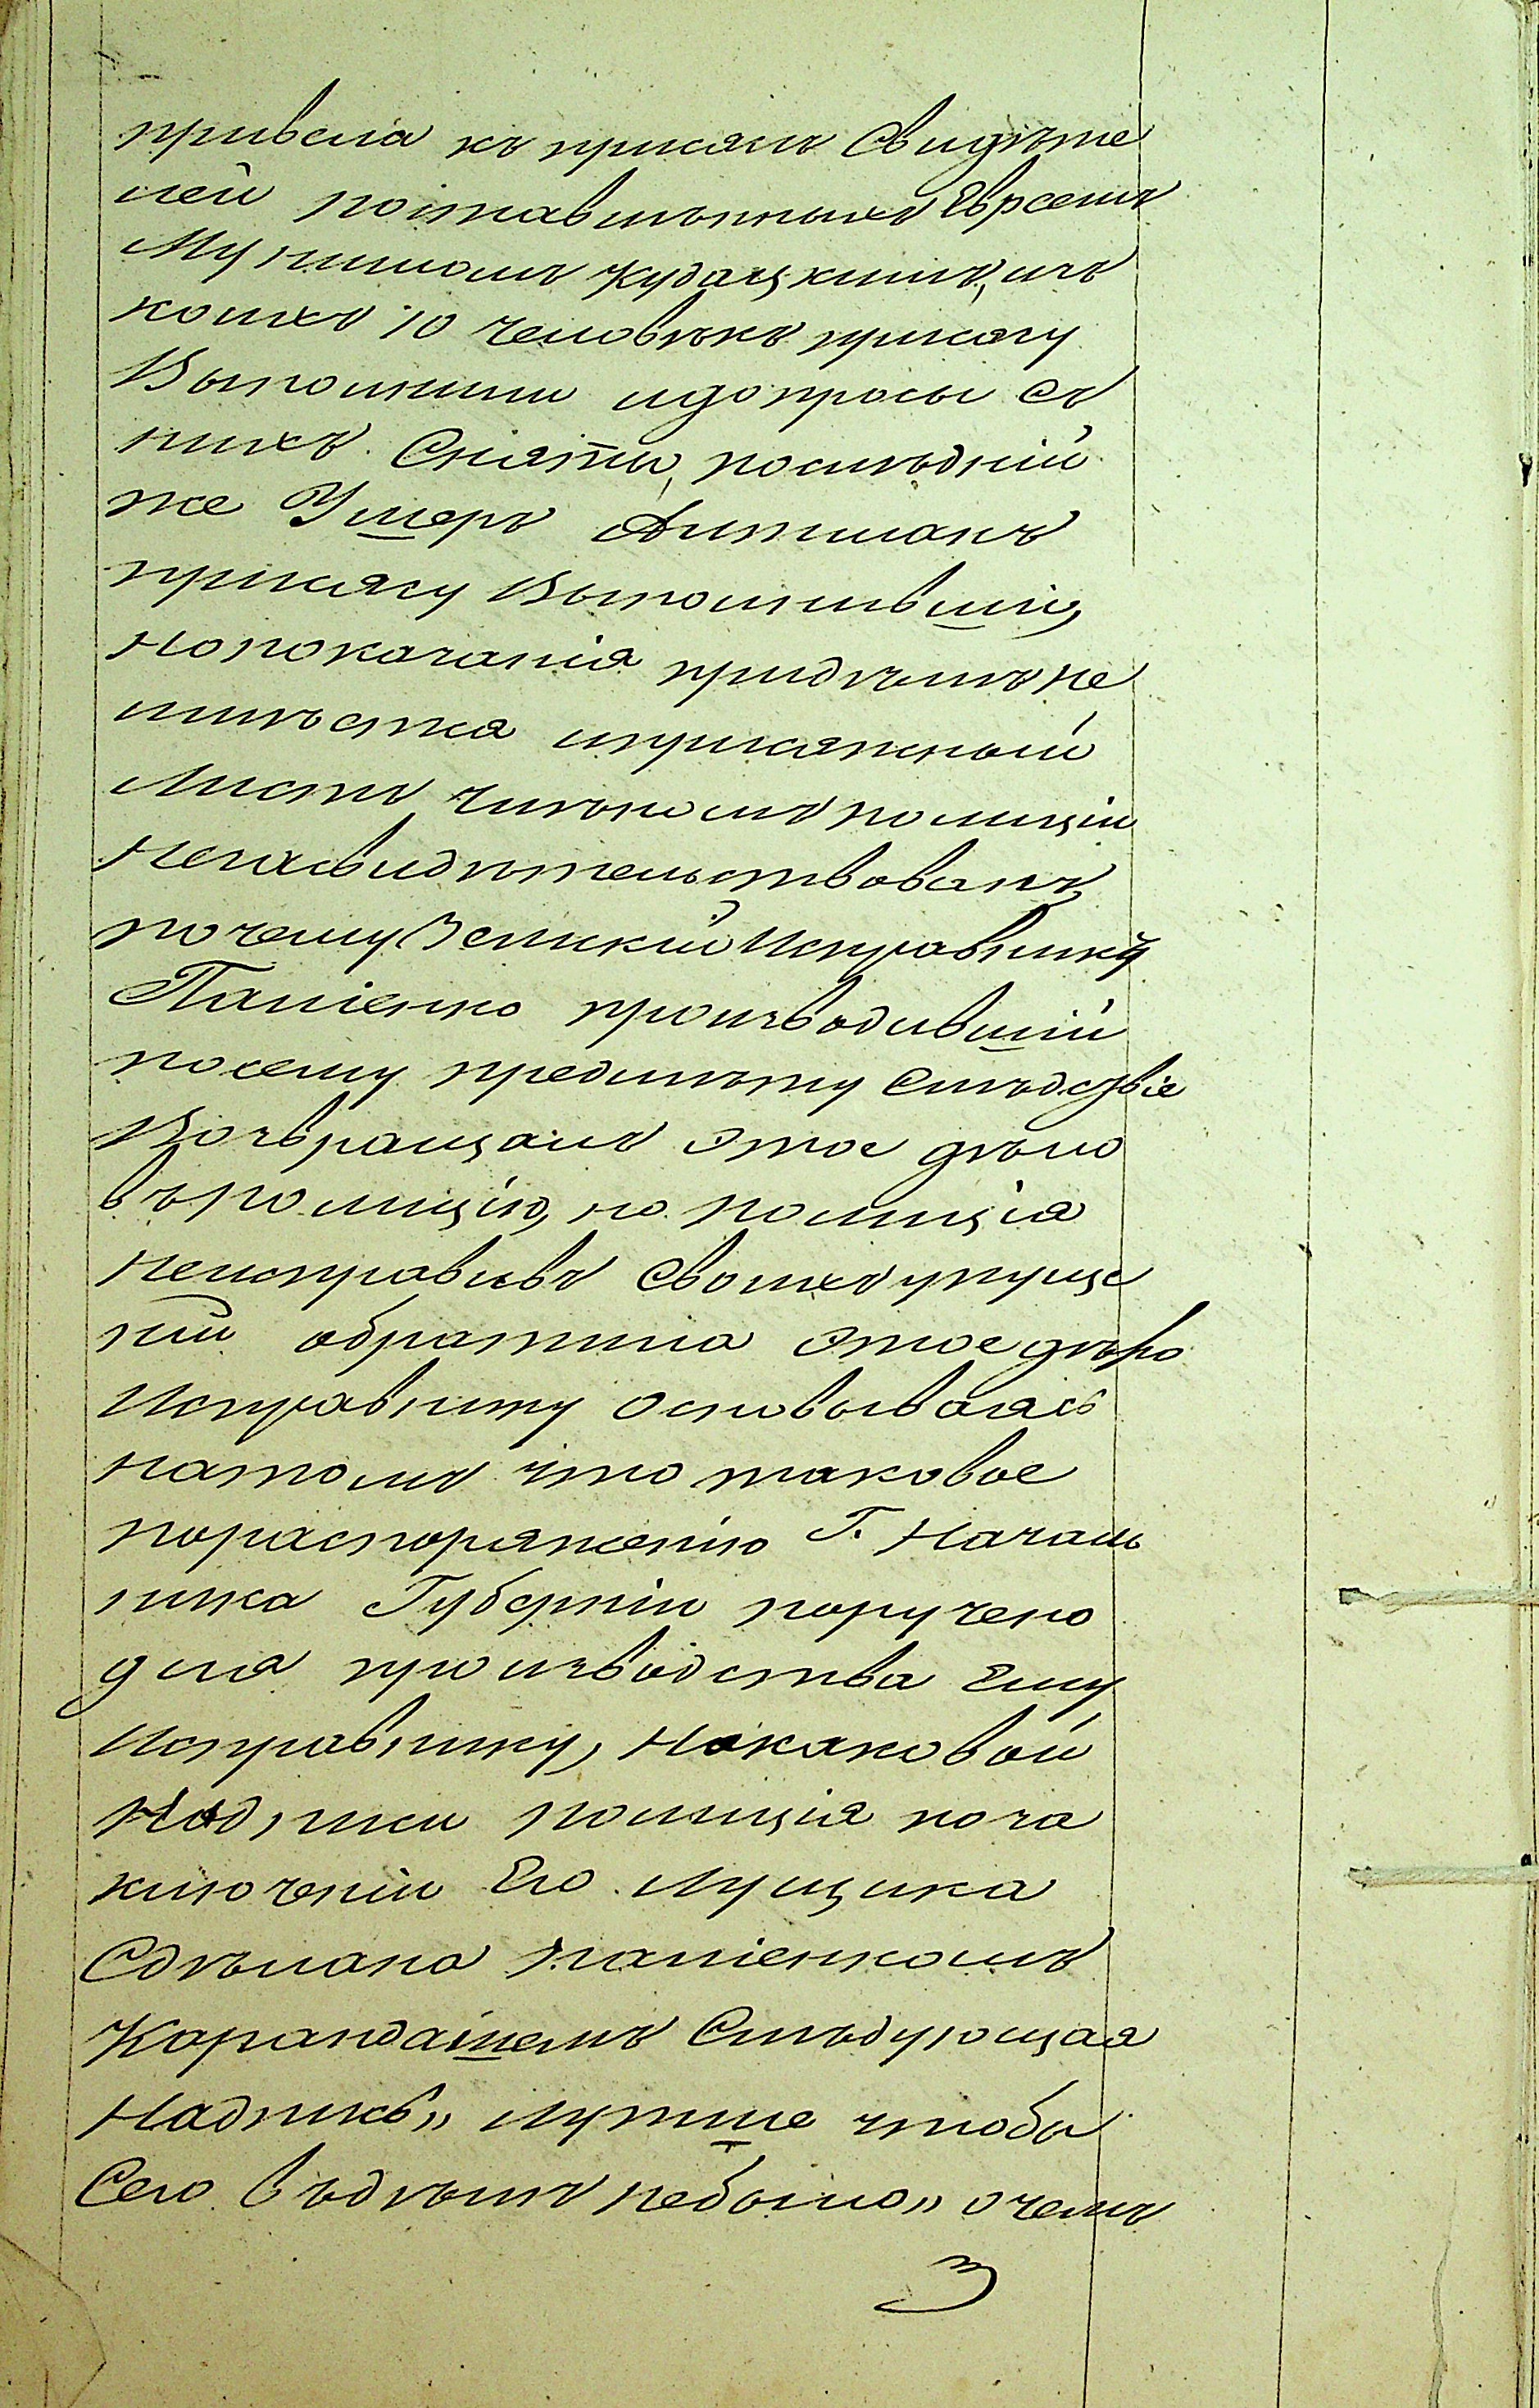 привела къ присягѣ Свидѣте
лей поставлѣнныхъ Евреемъ
Мунишомъ Кудацкимъ, изъ
коихъ 10 человѣкъ присягу
Выполнили идопросы съ
нихъ Сняты, послѣдній
же Ушеръ Антманъ
присягу Выполнившій,
нопоказанія придѣлѣ не
имѣется иприсяжный
Листъ Члѣномъ полиціи
незасвидѣтельствованъ,
почему Земскій Исправникъ
Папіенко производившій
посему предмѣту Слѣдствіе
Возвращалъ этое дѣло
въ полицію, но полиція
неисправивъ Своихъ упуще
ній обратила этое дѣло
Исправнику Основываясь
натомъ что таковое
пораспоряженію Г. Началь
ника Губерніи поручено
для производства Ему
Исправнику, Накаковой
Надписи полиція поза
ключеніи Его Лущика
Сдѣлана Папіенкомъ
Карандашемъ Слѣдующая
Надпись „ лутше чтобы
Сего въдѣлѣ небыло „ очемъ